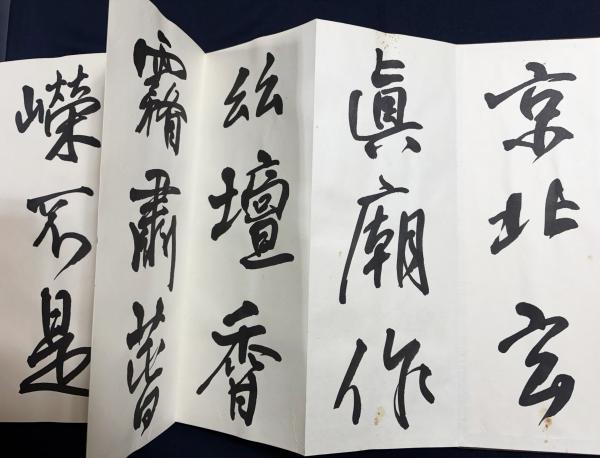 京北玄
眞廟作
壇香
霧肅
嶸不是